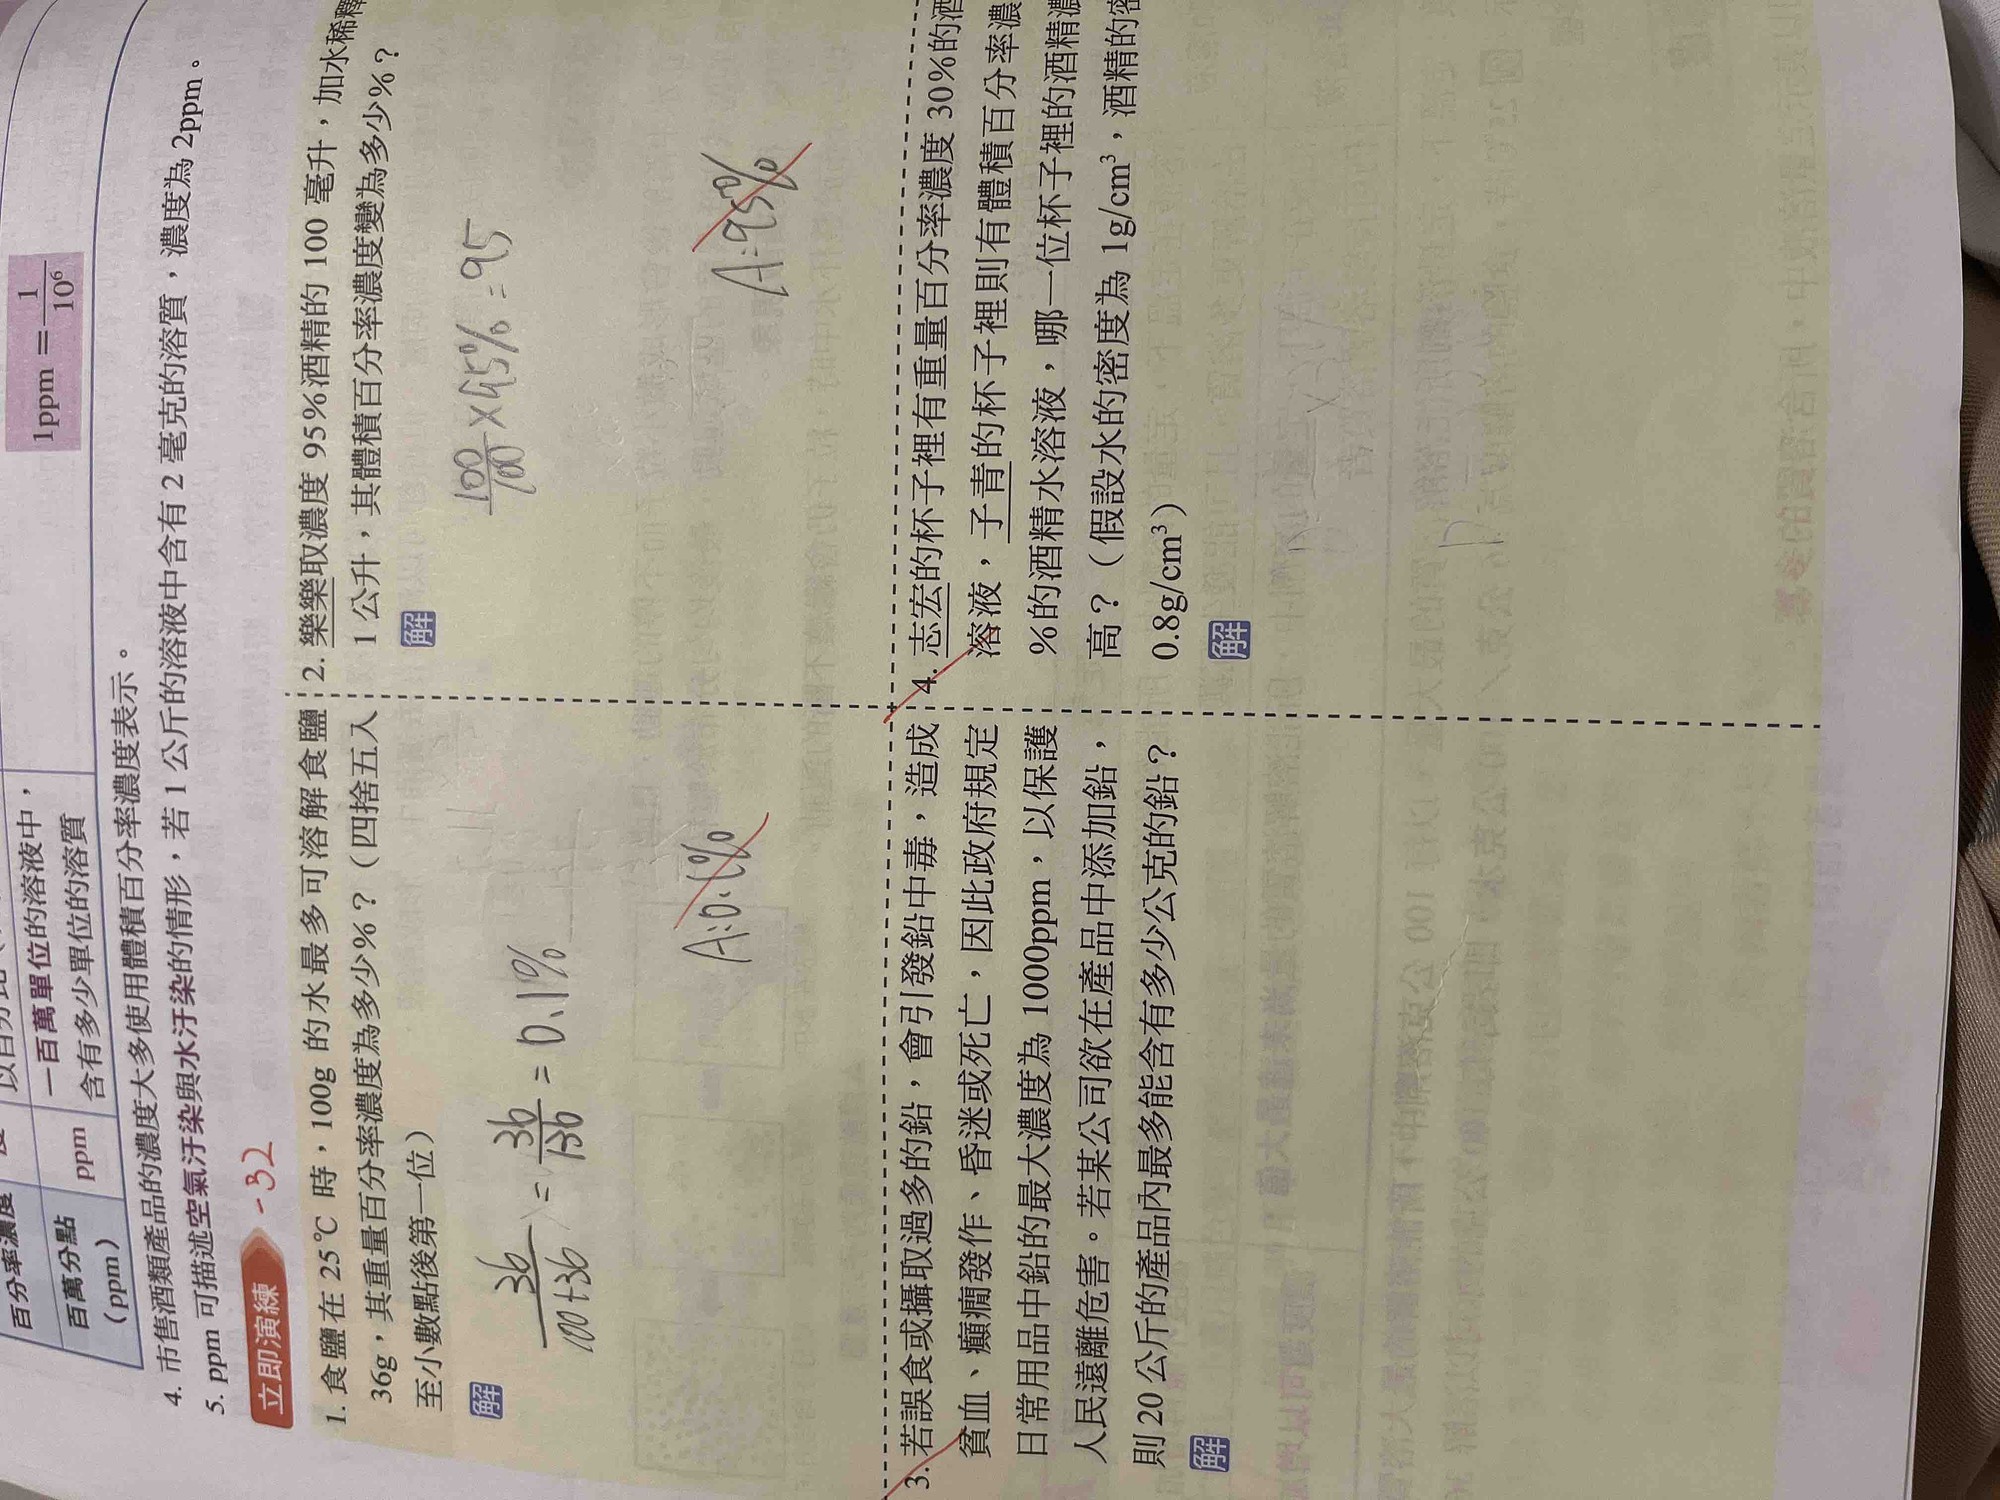 百分率濃度
百萬分點
（ppm）
ppm
一百萬單位的溶液中，
含有多少單位的溶質
1ppm＝1/10⁶
4. 市售酒類產品的濃度大多使用體積百分率濃度表示。
5. ppm 可描述空氣汙染與水汙染的情形，若 1 公斤的溶液中含有 2 毫克的溶質，濃度為 2ppm。
立即演練
-32
1. 食鹽在 25℃ 時，100g 的水最多可溶解食鹽
36g，其重量百分率濃度為多少%？（四捨五入
至小數點後第一位）
解
36/(100+36) = 36/136 = 0.1%
A:0.1%
2. 樂樂取濃度 95%酒精的 100 毫升，加水稀釋
1 公升，其體積百分率濃度變為多少%？
解
100/100 ×95% = 95
A:95%
3. 若誤食或攝取過多的鉛，會引發鉛中毒，造成
貧血、癲癇發作、昏迷或死亡，因此政府規定
日常用品中鉛的最大濃度為 1000ppm，以保護
人民遠離危害。若某公司欲在產品中添加鉛，
則 20 公斤的產品內最多能含有多少公克的鉛？
解
4. 志宏的杯子裡有重量百分率濃度 30%的酒
溶液，子青的杯子裡則有體積百分率濃
%的酒精水溶液，哪一位杯子裡的酒精濃
高？（假設水的密度為 1g/cm³，酒精的密
0.8g/cm³）
解